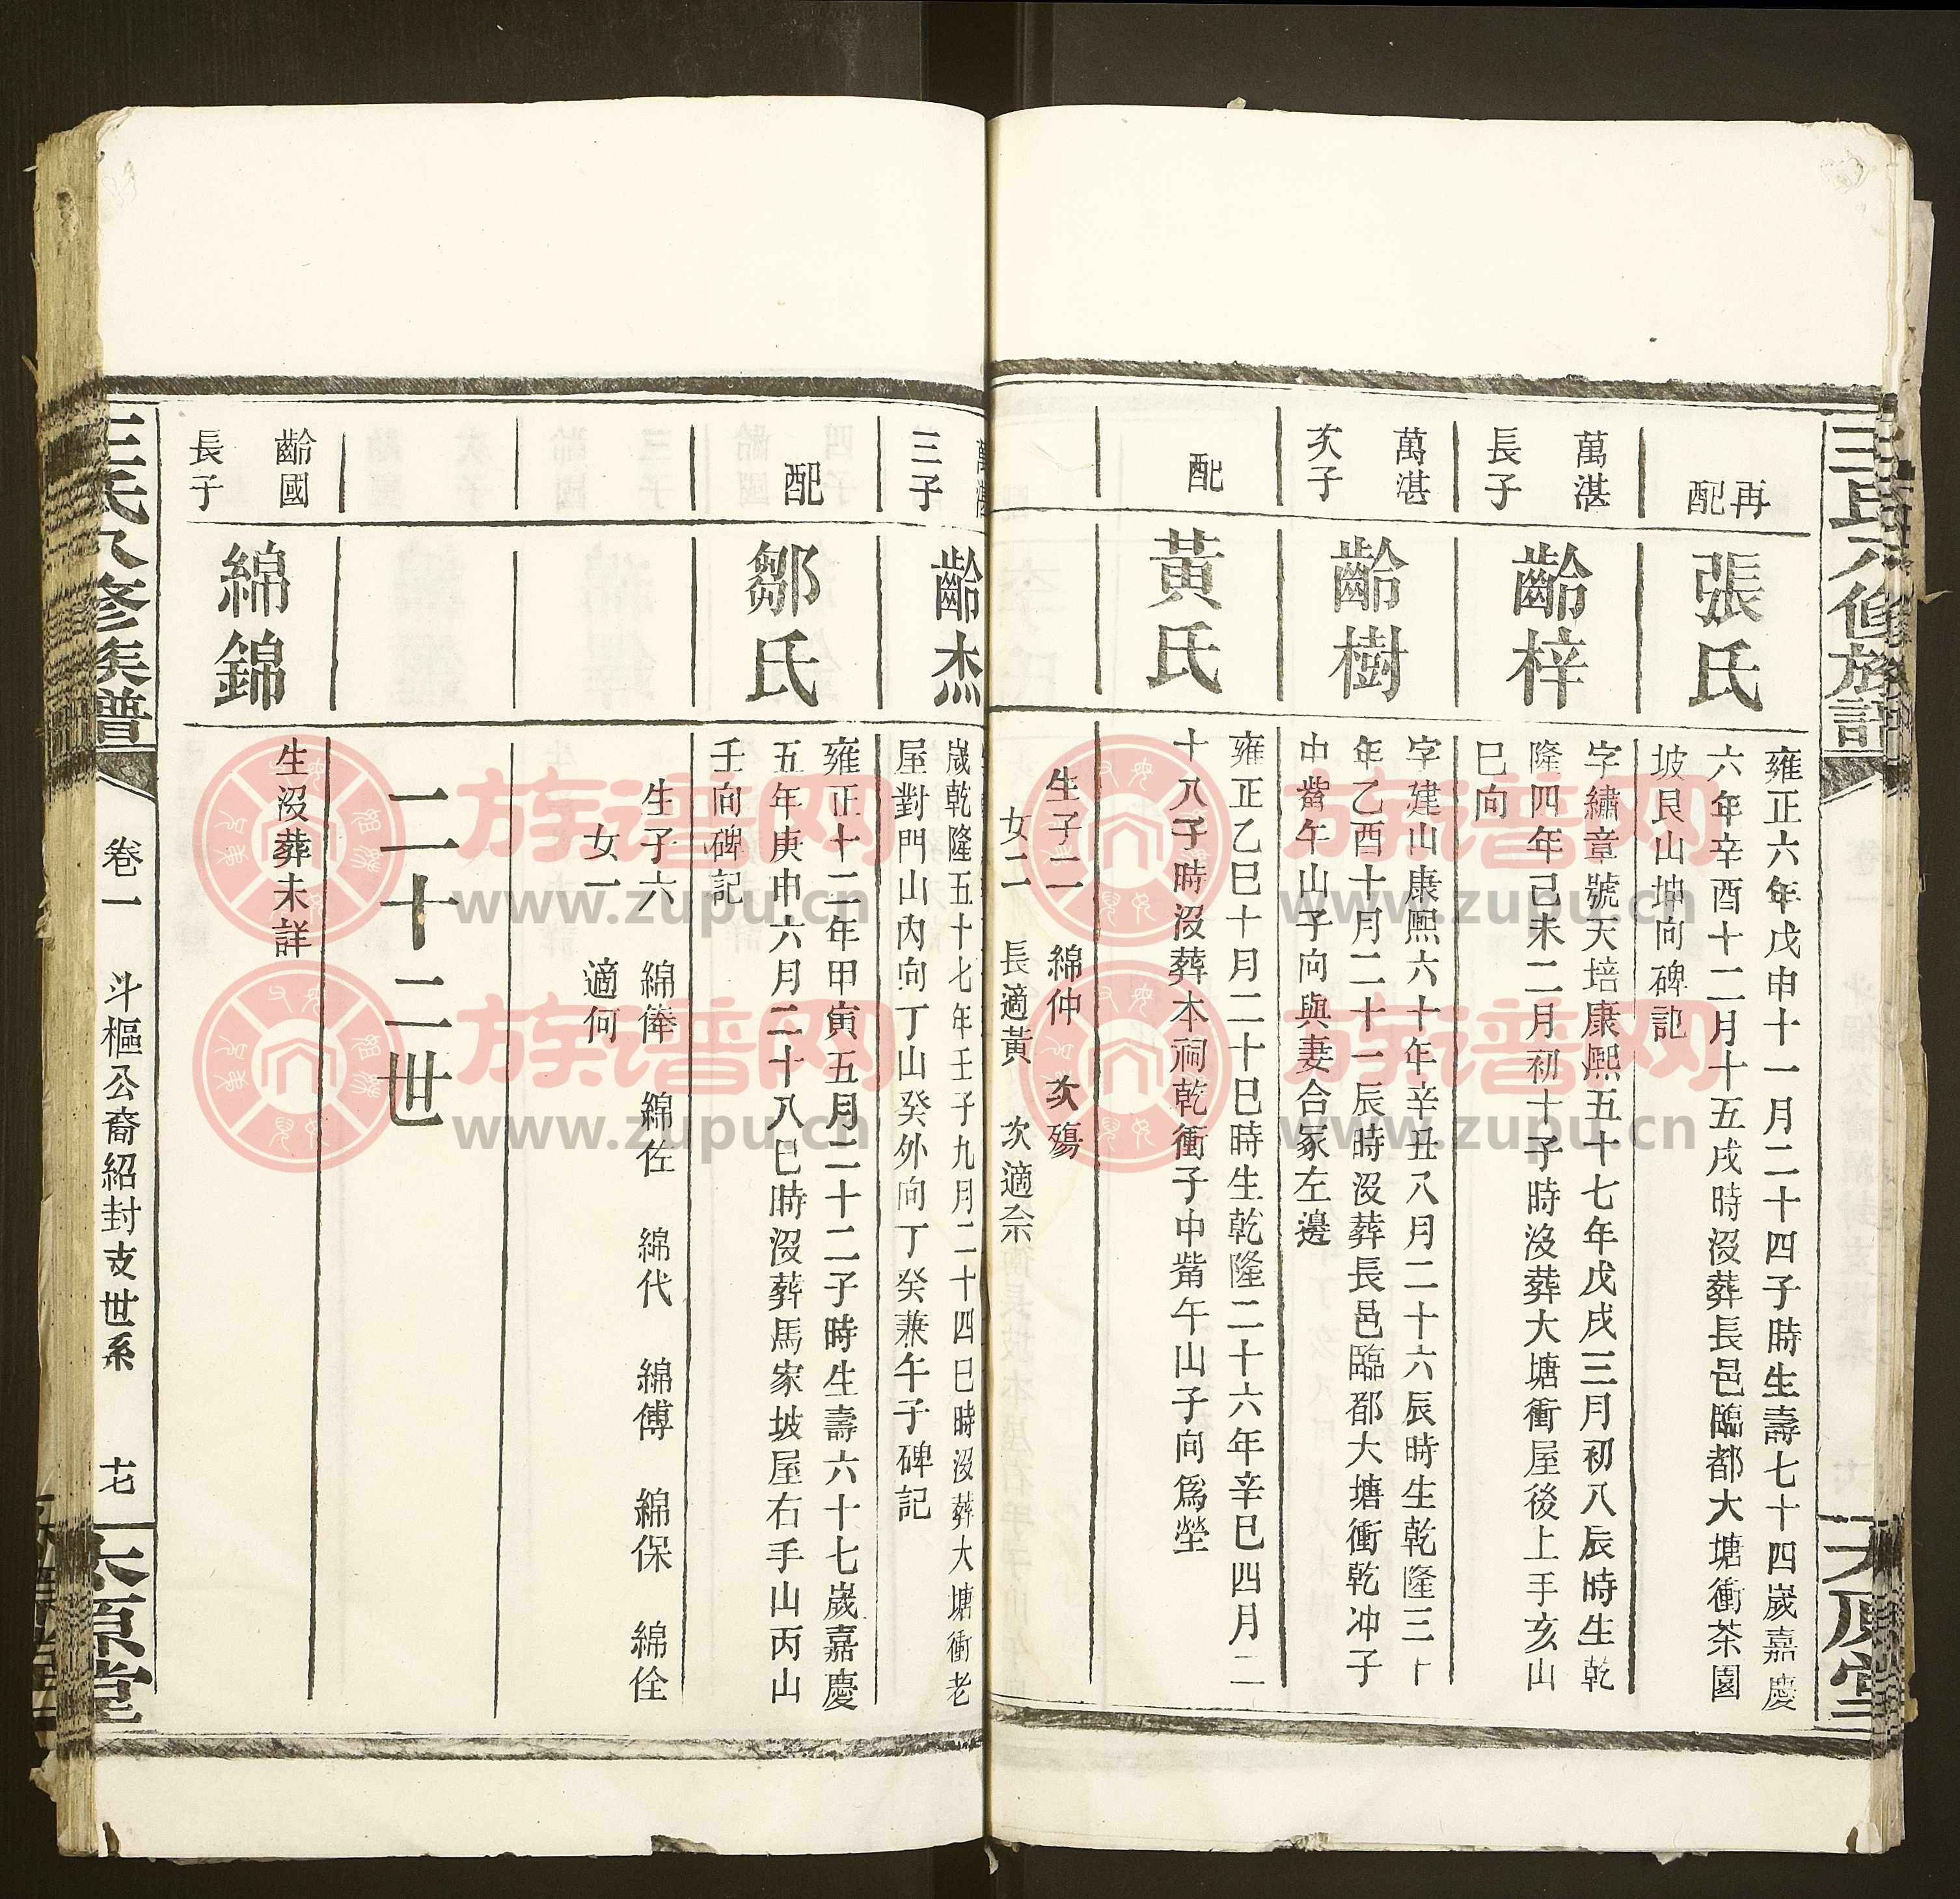 王氏六修族譜
太原堂
再
配
張氏
雍正六年戊申十一月二十四子時生壽七十四嵗嘉慶
六年辛酉十二月十五戌時沒葬長邑臨都大塘衝茶園
坡艮山坤向碑記
萬湛
長子
齡梓
字繡章號天培康熙五十七年戊戌三月初八辰時生乾
隆四年己未二月初十子時沒葬大塘衝屋後上手亥山
巳向
萬湛
次子
齡樹
字建山康熙六十年辛丑八月二十六辰時生乾隆三十
年乙酉十月二十一辰時沒葬長邑臨都大塘衝乾冲子
中觜午山子向與妻合冢左邊
配
黃氏
雍正乙巳十月二十巳時生乾隆二十六年辛巳四月二
十八子時沒葬本祠乾衝子中觜午山子向為塋
生子二 綿仲 次殤
女二 長適黃 次適佘
萬湛
三子
齡杰
嵗乾隆五十七年壬子九月二十四巳時沒葬大塘衝老
屋對門山內向丁山癸外向丁癸兼午子碑記
配
鄒氏
雍正十二年甲寅五月二十二子時生壽六十七嵗嘉慶
五年庚申六月二十八巳時沒葬馬家坡屋右手山丙山
壬向碑記
生子六 綿俸 綿佐 綿代 綿傅 綿保 綿佺
女一 適何
二十二世
齡國
長子
綿錦
生沒葬未詳
王氏六修族譜
卷一 斗樞公裔紹封支世系 十七
太原堂
族谱网
www.zupu.cn
族谱网
www.zupu.cn
族谱网
www.zupu.cn
族谱网
www.zupu.cn